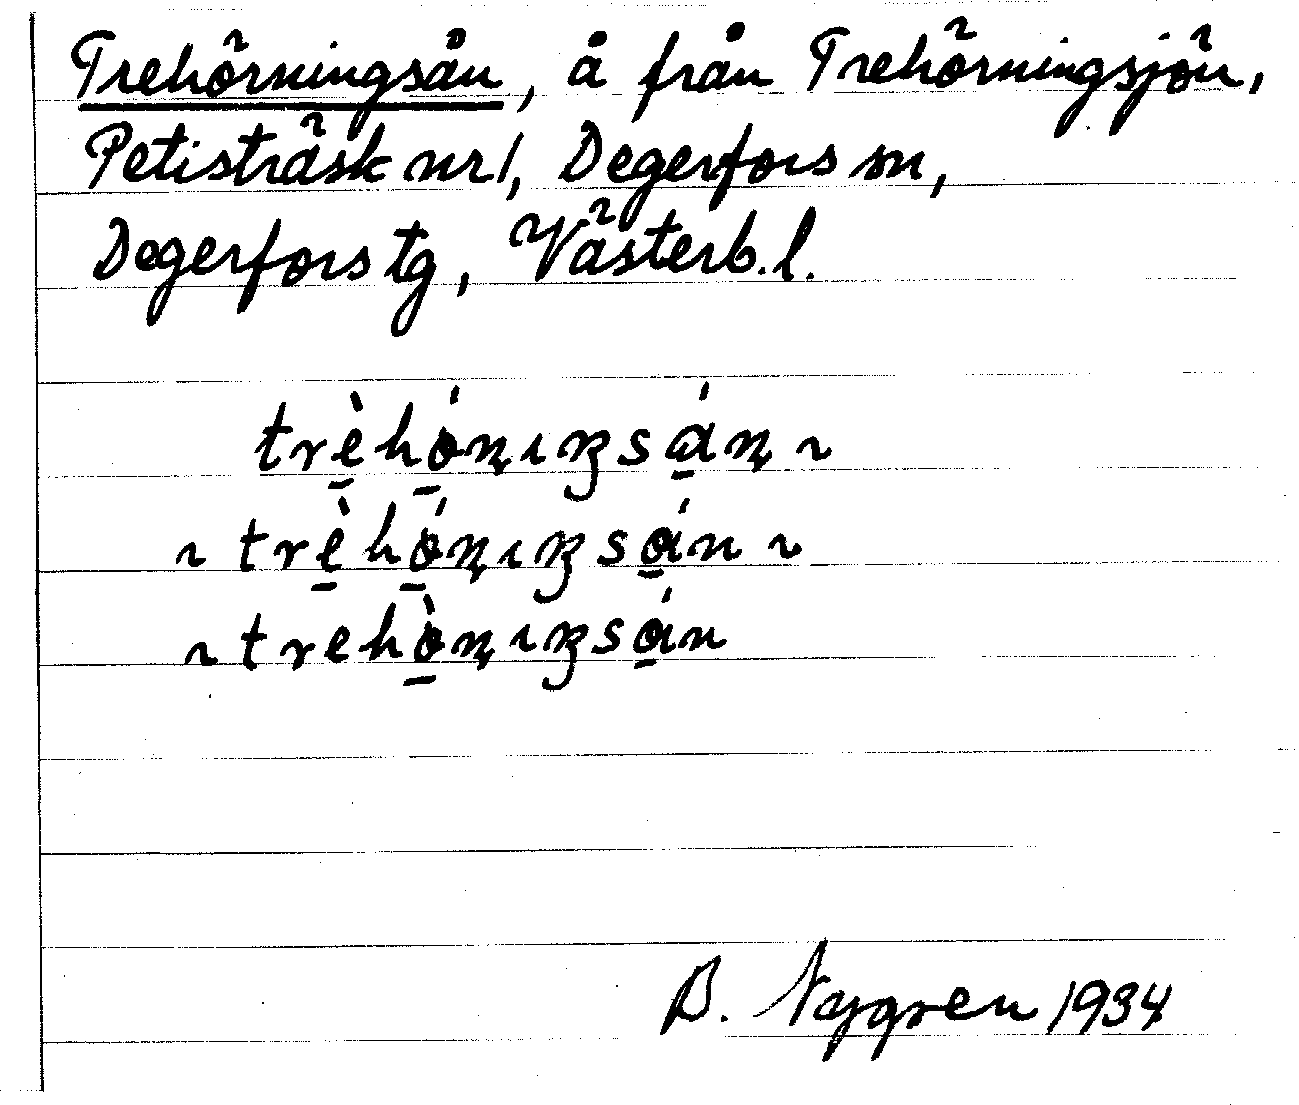 Trehörningsån, å från Trehörningsjön,
Petisträsk nr 1, Degerfors sn,
Degerfors tg, Västerb. l.
trèhóṇıŋsán ~
~ trèhóṇıŋsán ~
~ trehòṇıŋsán
B. Nygren 1934